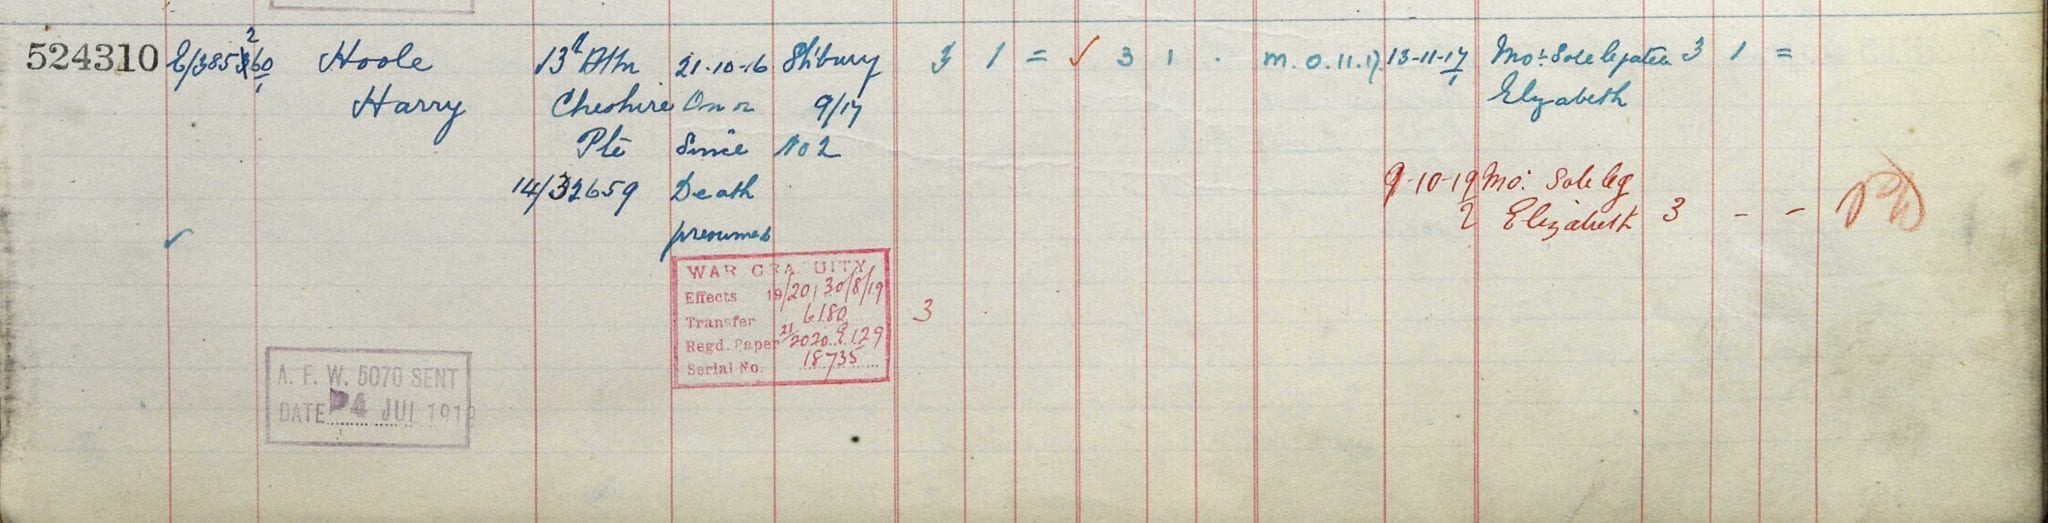 524310 E/385360/1 2 Hoole 13th Bttn 21-10-16 S'bury 3 1 = ✓ 3 1 . M.O.11.17 13-11-17 Mo: Sole legatee 3 1 =
Harry Cheshire On or 9/17 1 Elizabeth
Pte Since No 2
14/32659 Death 9-10-19 Mo: Sole leg
✓ presumed 2 Elizabeth 3 - -
WAR GRATUITY
Effects 19/20, 30/8/19 3
Transfer 6180
Regd. Paper 21/2020.9.129
Serial No. 18735
A. F. W. 5070 SENT
DATE 24 JUL 1919